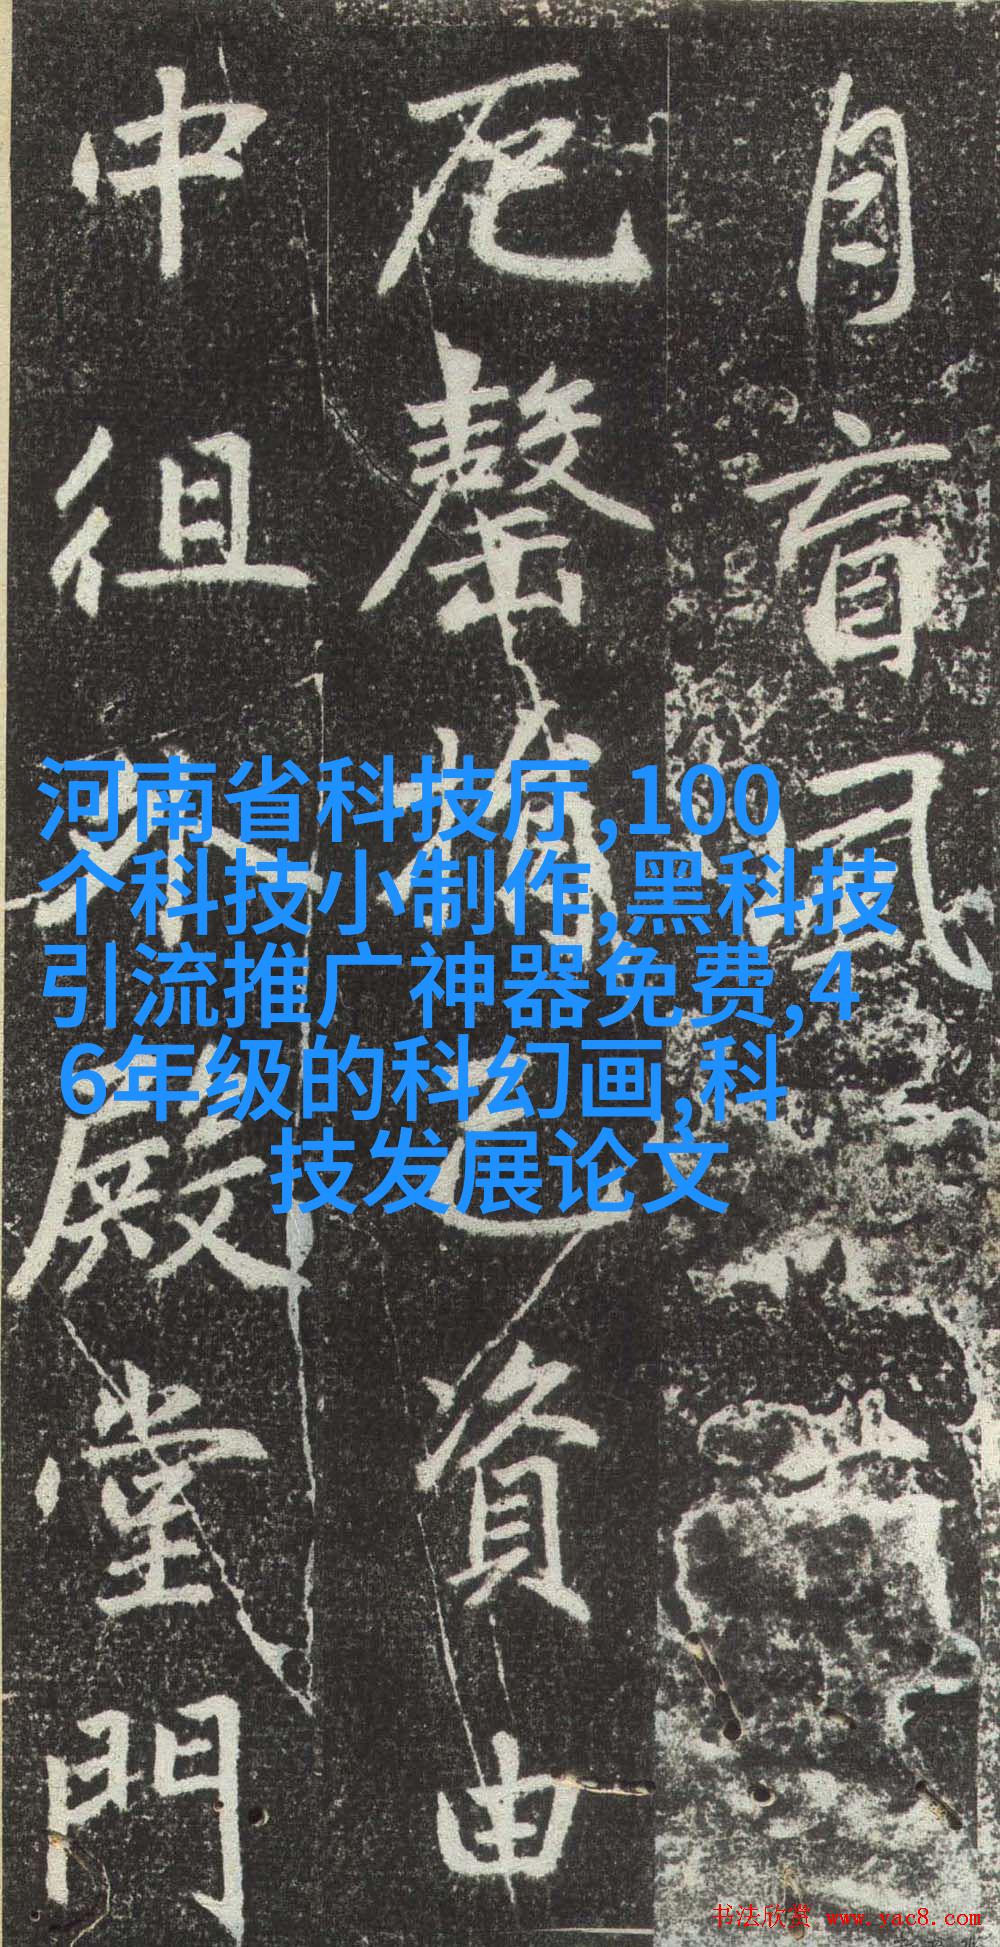 自盲風
厄罄資由
中徂殿堂門
河南省科技厅,100
个科技小制作,黑科技
引流推广神器免费,4
6年级的科幻画,科
技发展论文
书法欣赏 www.yac8.com